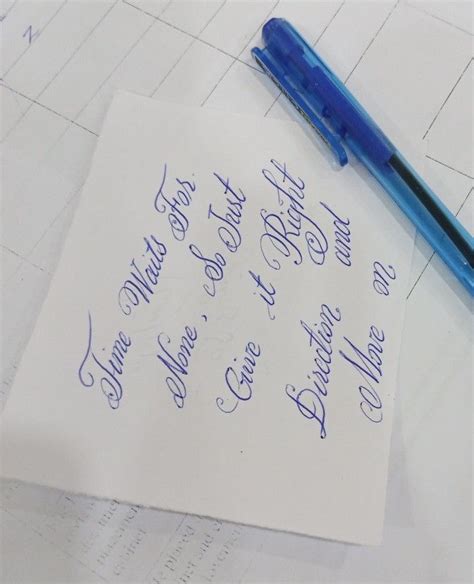 Time Waits For
None, So Just
Give it Right
Direction and
Move on